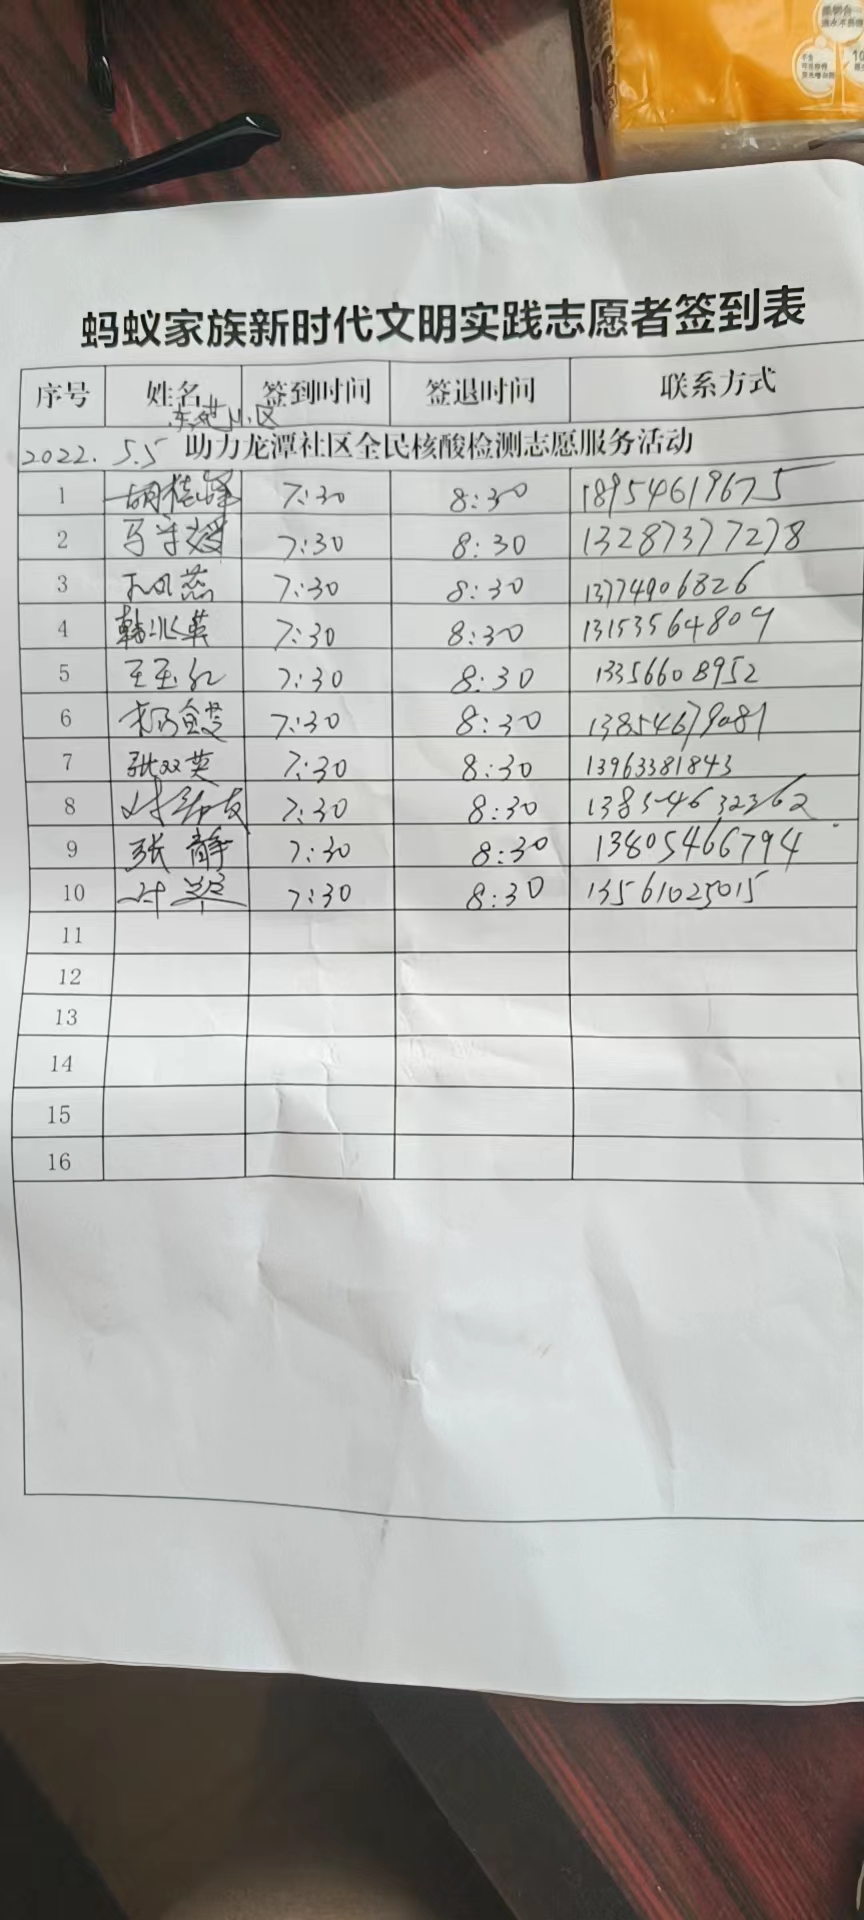 蚂蚁家族新时代文明实践志愿者签到表
序号 姓名 签到时间 签退时间 联系方式
小区
2022.5.5 助力龙潭社区全民核酸检测志愿服务活动
1 7:30 8:30 18954619675
2 7:30 8:30 13287377278
3 7:30 8:30 13774906826
4 7:30 8:30 13153564809
5 王玉红 7:30 8:30 13356608952
6 7:30 8:30 13854679081
7 张双英 7:30 8:30 13963381843
8 7:30 8:30
9 张静 7:30 8:30 13805466794
10 7:30 8:30 13561025015
11
12
13
14
15
16